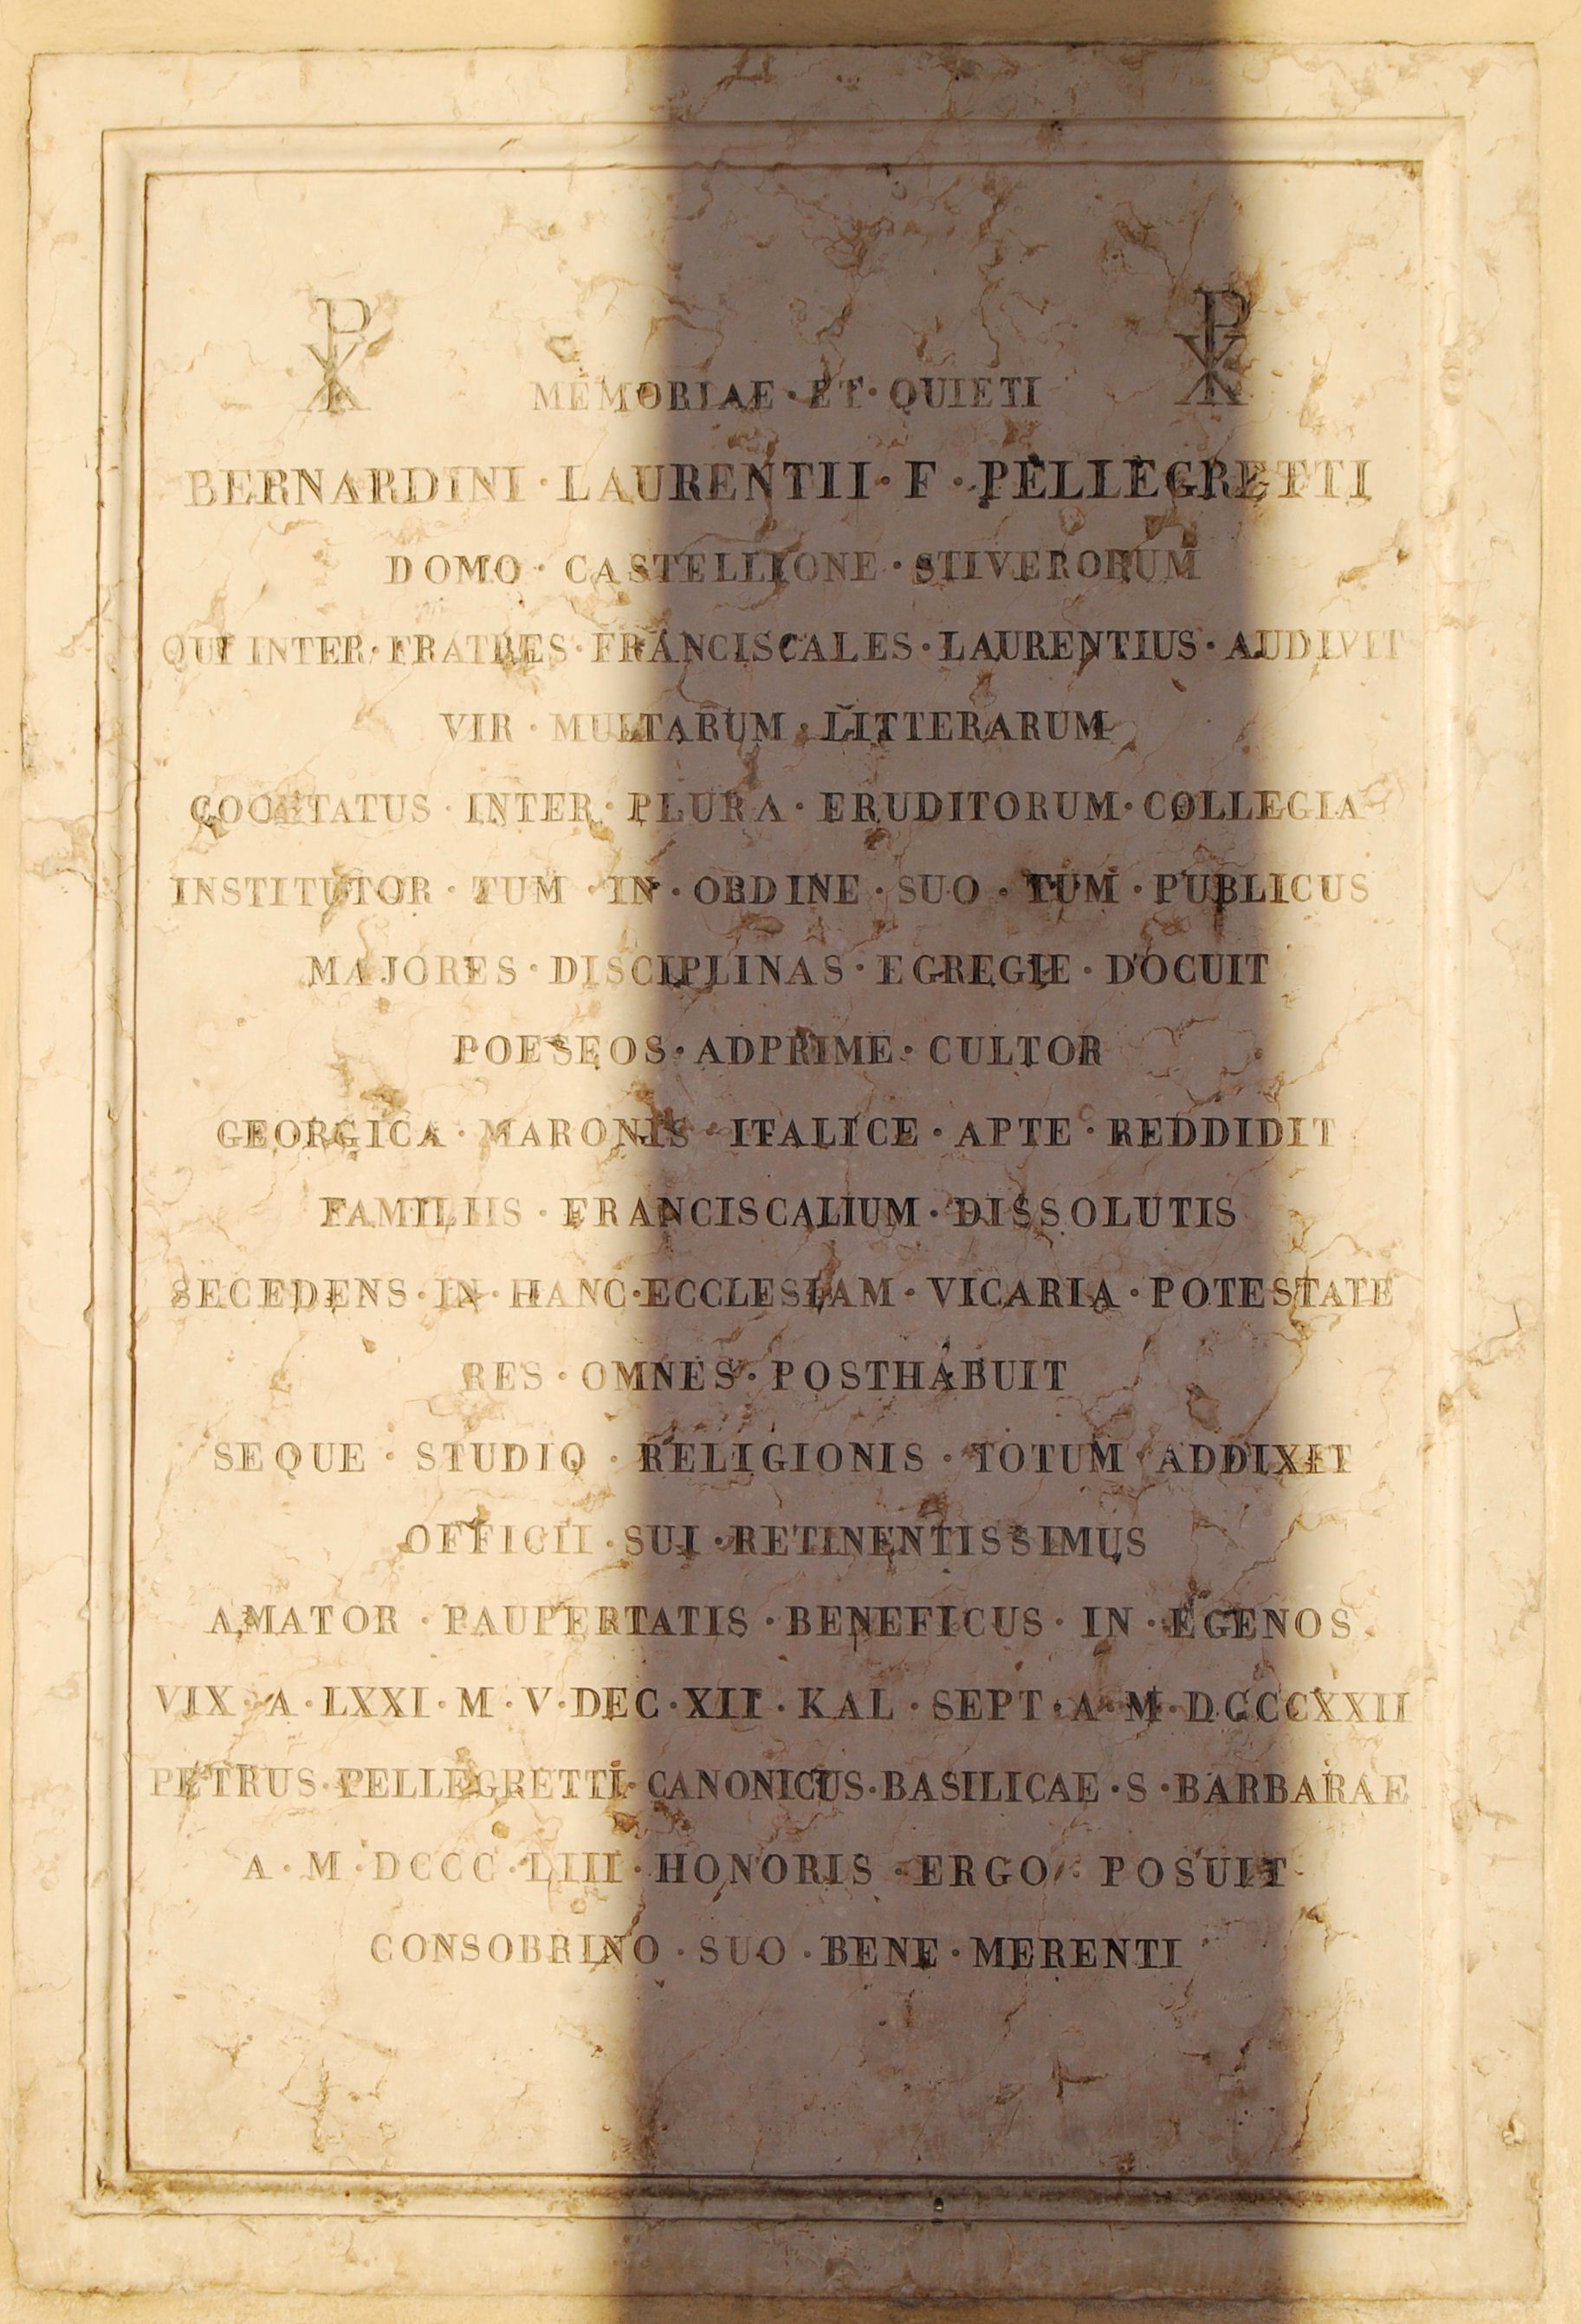 MEMORIAE · ET · QUIETI
BERNARDINI · LAURENTII · F · PELLEGRETTI
DOMO · CASTELLIONE · STIVERORUM
QUI INTER · FRATRES · FRANCISCALES · LAURENTIUS · AUDIVIT
VIR · MULTARUM · LITTERARUM
COOETATUS · INTER · PLURA · ERUDITORUM · COLLEGIA
INSTITUTOR · TUM · IN · ORDINE · SUO · TUM · PUBLICUS
MAJORES · DISCIPLINAS · EGREGIE · DOCUIT
POESEOS · ADPRIME · CULTOR
GEORGICA · MARONIS · ITALICE · APTE · REDDIDIT
FAMILIIS · FRANCISCALIUM · DISSOLUTIS
SECEDENS · IN · HANC · ECCLESIAM · VICARIA · POTESTATE
RES · OMNES · POSTHABUIT
SEQUE · STUDIO · RELIGIONIS · TOTUM · ADDIXIT
OFFICII · SUI · RETINENTISSIMUS
AMATOR · PAUPERTATIS · BENEFICUS · IN · EGENOS
VIX · A · LXXI · M · V · DEC · XII · KAL · SEPT · A · M · DCCCXXII
PETRUS · PELLEGRETTI · CANONICUS · BASILICAE · S · BARBARAE
A · M · DCCC · LIII · HONORIS · ERGO · POSUIT
CONSOBRINO · SUO · BENE · MERENTI